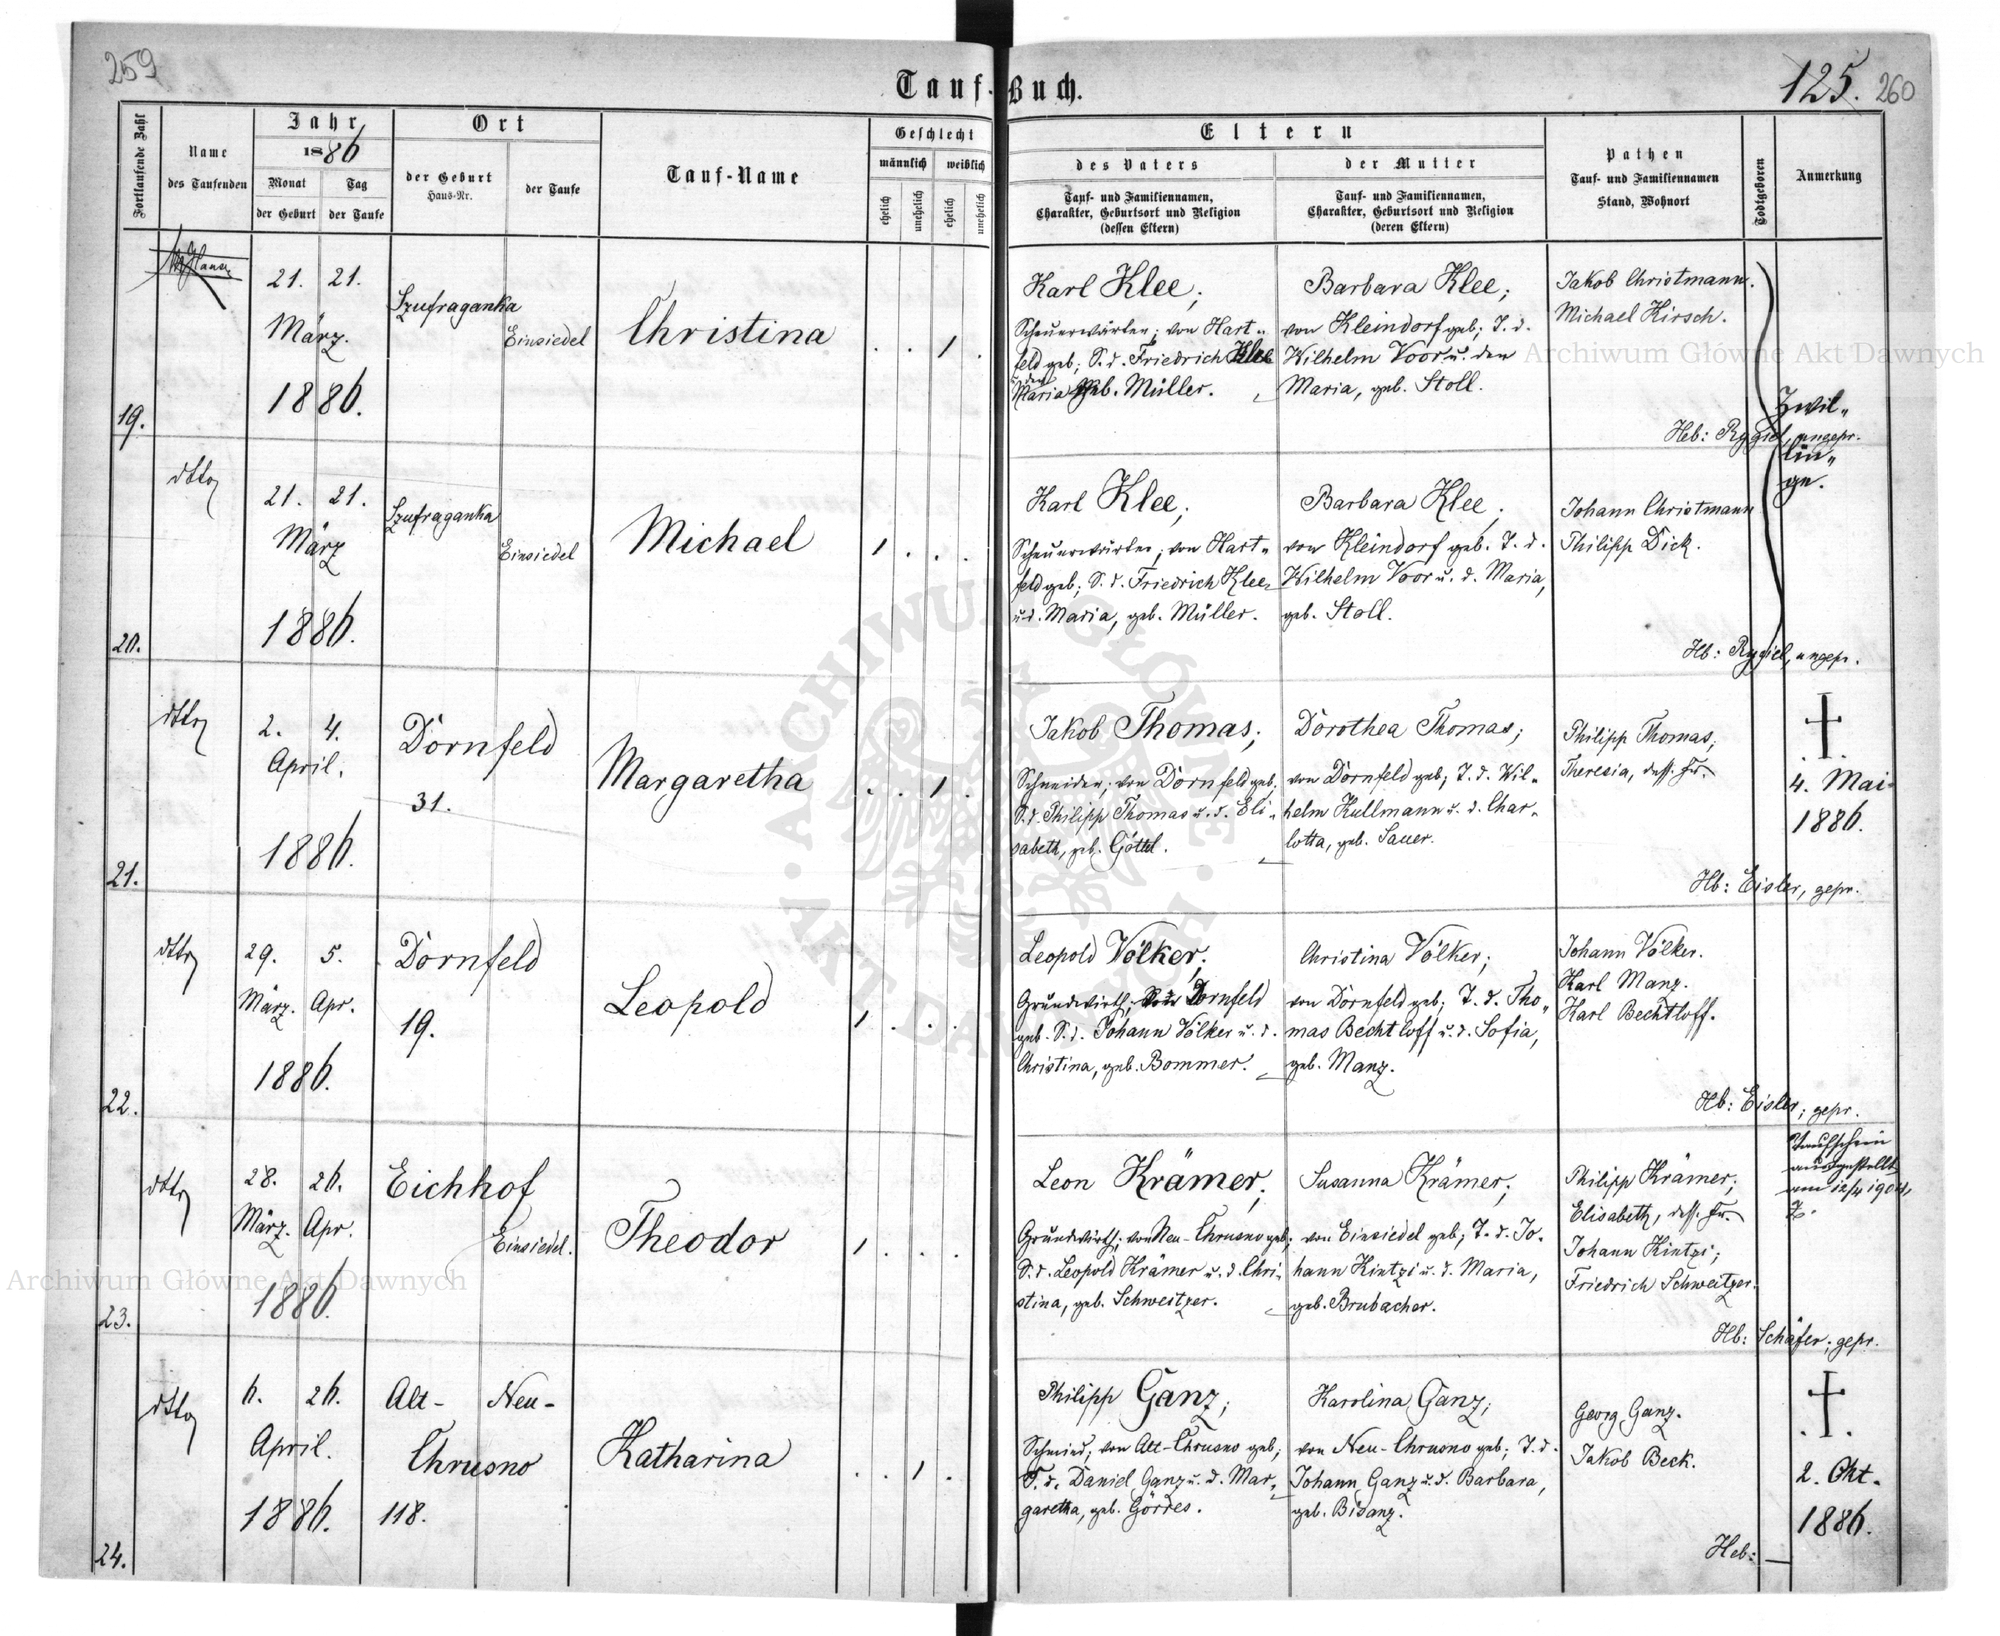 259
Tauf-Buch.
125. 260
Fortlaufende Zahl
Name
des Taufenden
Jahr
1886
Monat
Tag
der Geburt
der Taufe
Ort
der Geburt
Haus-Nr.
der Taufe
Tauf-Name
Geschlecht
männlich
weiblich
ehelich
unehelich
ehelich
unehelich
Eltern
des Vaters
Tauf- und Familiennamen,
Charakter, Geburtsort und Religion
(dessen Eltern)
der Mutter
Tauf- und Familiennamen,
Charakter, Geburtsort und Religion
(deren Eltern)
Pathen
Tauf- und Familiennamen
Stand, Wohnort
Todtgeboren
Anmerkung
19.
21. 21.
März.
1886.
Szufraganka
Einsiedel
Christina
. . 1 .
Karl Klee;
Scheuerwärter; von Hart-
feld geb; S. d. Friedrich Klee
u. der
Maria geb. Müller.
Barbara Klee;
von Kleindorf geb; T. d.
Wilhelm Voor u. der
Maria, geb. Stoll.
Jakob Christmann.
Michael Hirsch.
Heb: Rygiel, ungepr.
Zwil-
lin-
ge.
20.
dtto
21. 21.
März
1886.
Szufraganka
Einsiedel
Michael
1 . . .
Karl Klee;
Scheuerwärter; von Hart-
feld geb; S. d. Friedrich Klee
u. d. Maria, geb. Müller.
Barbara Klee;
von Kleindorf geb. T. d.
Wilhelm Voor u. d. Maria,
geb. Stoll.
Johann Christmann
Philipp Dick.
Hb: Rygiel, ungepr.
21.
dtto
2. 4.
April.
1886.
Dornfeld
31.
Margaretha
. . 1 .
Jakob Thomas;
Schneider; von Dornfeld geb.
S. d. Philipp Thomas u. d. Eli-
sabeth, geb. Göttel.
Dorothea Thomas;
von Dornfeld geb; T. d. Wil-
helm Kullmann u. d. Char-
lotta, geb. Sauer.
Philipp Thomas;
Theresia, dess. Fr.
Hb: Eisler, gepr.
4. Mai
1886.
22.
dtto
29. 5.
März. Apr.
1886.
Dornfeld
19.
Leopold
1 . . .
Leopold Völker;
Grundwirth; von Dornfeld
geb. S. d. Johann Völker u. d.
Christina, geb. Bommer.
Christina Völker;
von Dornfeld geb; T. d. Tho-
mas Bechtloff u. d. Sofia,
geb. Manz.
Johann Völker.
Karl Manz.
Karl Bechtloff.
Hb: Eisler; gepr.
23.
dtto
28. 26.
März. Apr.
1886.
Eichhof
Einsiedel.
Theodor
1 . . .
Leon Krämer;
Grundwirth; von Neu-Chrusno geb;
S. d. Leopold Krämer u. d. Chri-
stina, geb. Schweitzer.
Susanna Krämer;
von Einsiedel geb; T. d. Jo-
hann Kintzi u. d. Maria,
geb. Brubacher.
Philipp Krämer;
Elisabeth, dess. Fr.
Johann Kintzi;
Friedrich Schweitzer.
Hb: Schäfer; gepr.
Taufschein
ausgestellt
am 12/4 1904,
24.
dtto
6. 26.
April.
1886.
Alt- Neu-
Chrusno
118.
Katharina
. . 1 .
Philipp Ganz;
Schmied; von Alt-Chrusno geb;
S. d. Daniel Ganz u. d. Mar-
garetha, geb. Görres.
Karolina Ganz;
von Neu-Chrusno geb; T. d.
Johann Ganz u. d. Barbara,
geb. Bisanz.
Georg Ganz.
Jakob Beck.
Heb: —
2. Okt.
1886.
Archiwum Główne Akt Dawnych
Archiwum Główne Akt Dawnych
ARCHIWUM GŁÓWNE AKT DAWNYCH